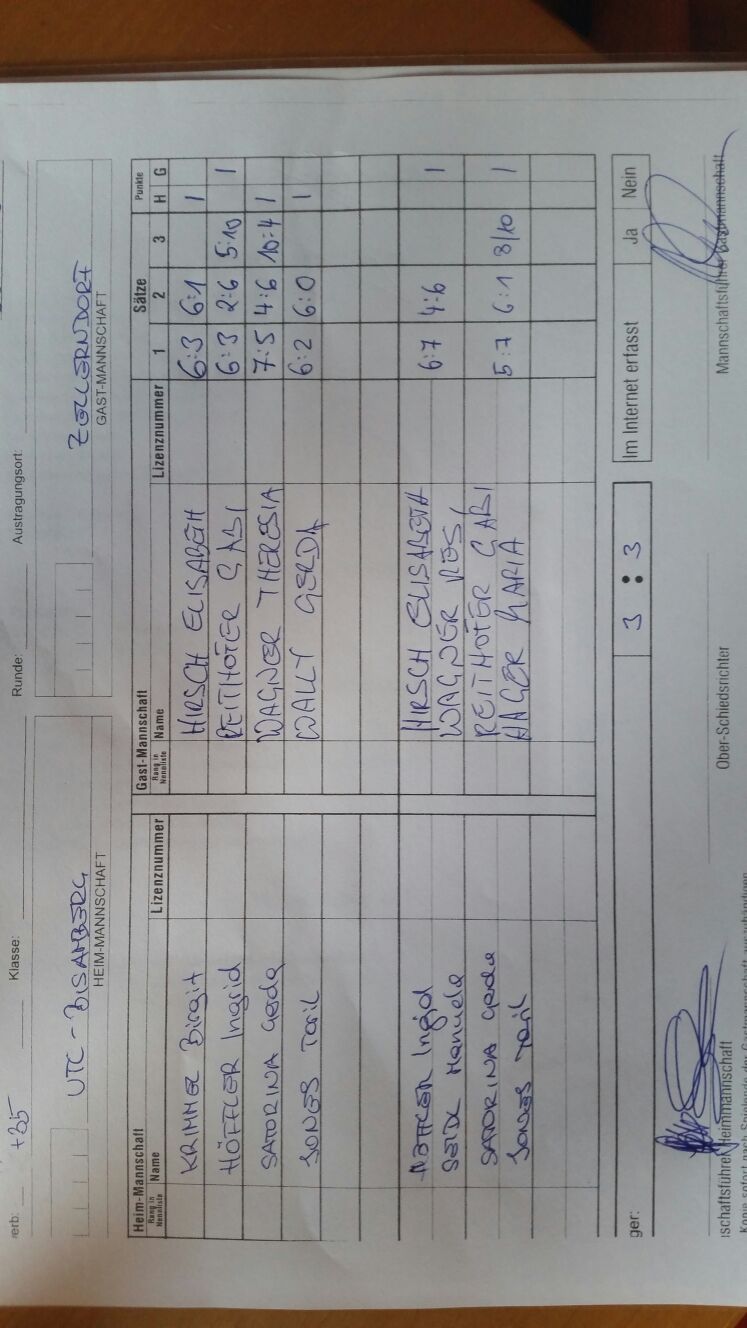 erb: +35 Klasse: Runde: Austragungsort:
UTC - BISAMBERG ZELLERNDORF
HEIM-MANNSCHAFT GAST-MANNSCHAFT
Heim-Mannschaft Gast-Mannschaft Sätze Punkte
Rang in Nennliste Name Lizenznummer Rang in Nennliste Name Lizenznummer 1 2 3 H G
KRIMMEL Birgit HIRSCH ELISABETH 6:3 6:1 1
HÖFFLER Ingrid REITHOFER GABI 6:3 2:6 5:10 1
SATORINA Gerda WAGNER THERESIA 7:5 4:6 10:4 1
JONES Toril WALLY GERDA 6:2 6:0 1
HÖFFLER Ingrid HIRSCH ELISABETH 6:7 4:6 1
SEIDL Manuela WAGNER RESI
SATORINA Gerda REITHOFER GABI 5:7 6:1 8/10 1
JONES Toril HAGER MARIA
ger: 3 : 3 Im Internet erfasst Ja Nein
schaftsführer Heimmannschaft Ober-Schiedsrichter Mannschaftsführer Gastmannschaft